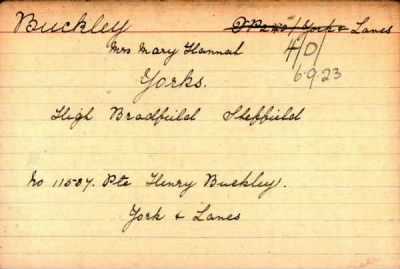 Buckley York & Lancs
Mrs Mary Hannah 4/D/
Yorks. 6.9.23
High Bradfield Sheffield
No 11587. Pte Henry Buckley.
York & Lancs